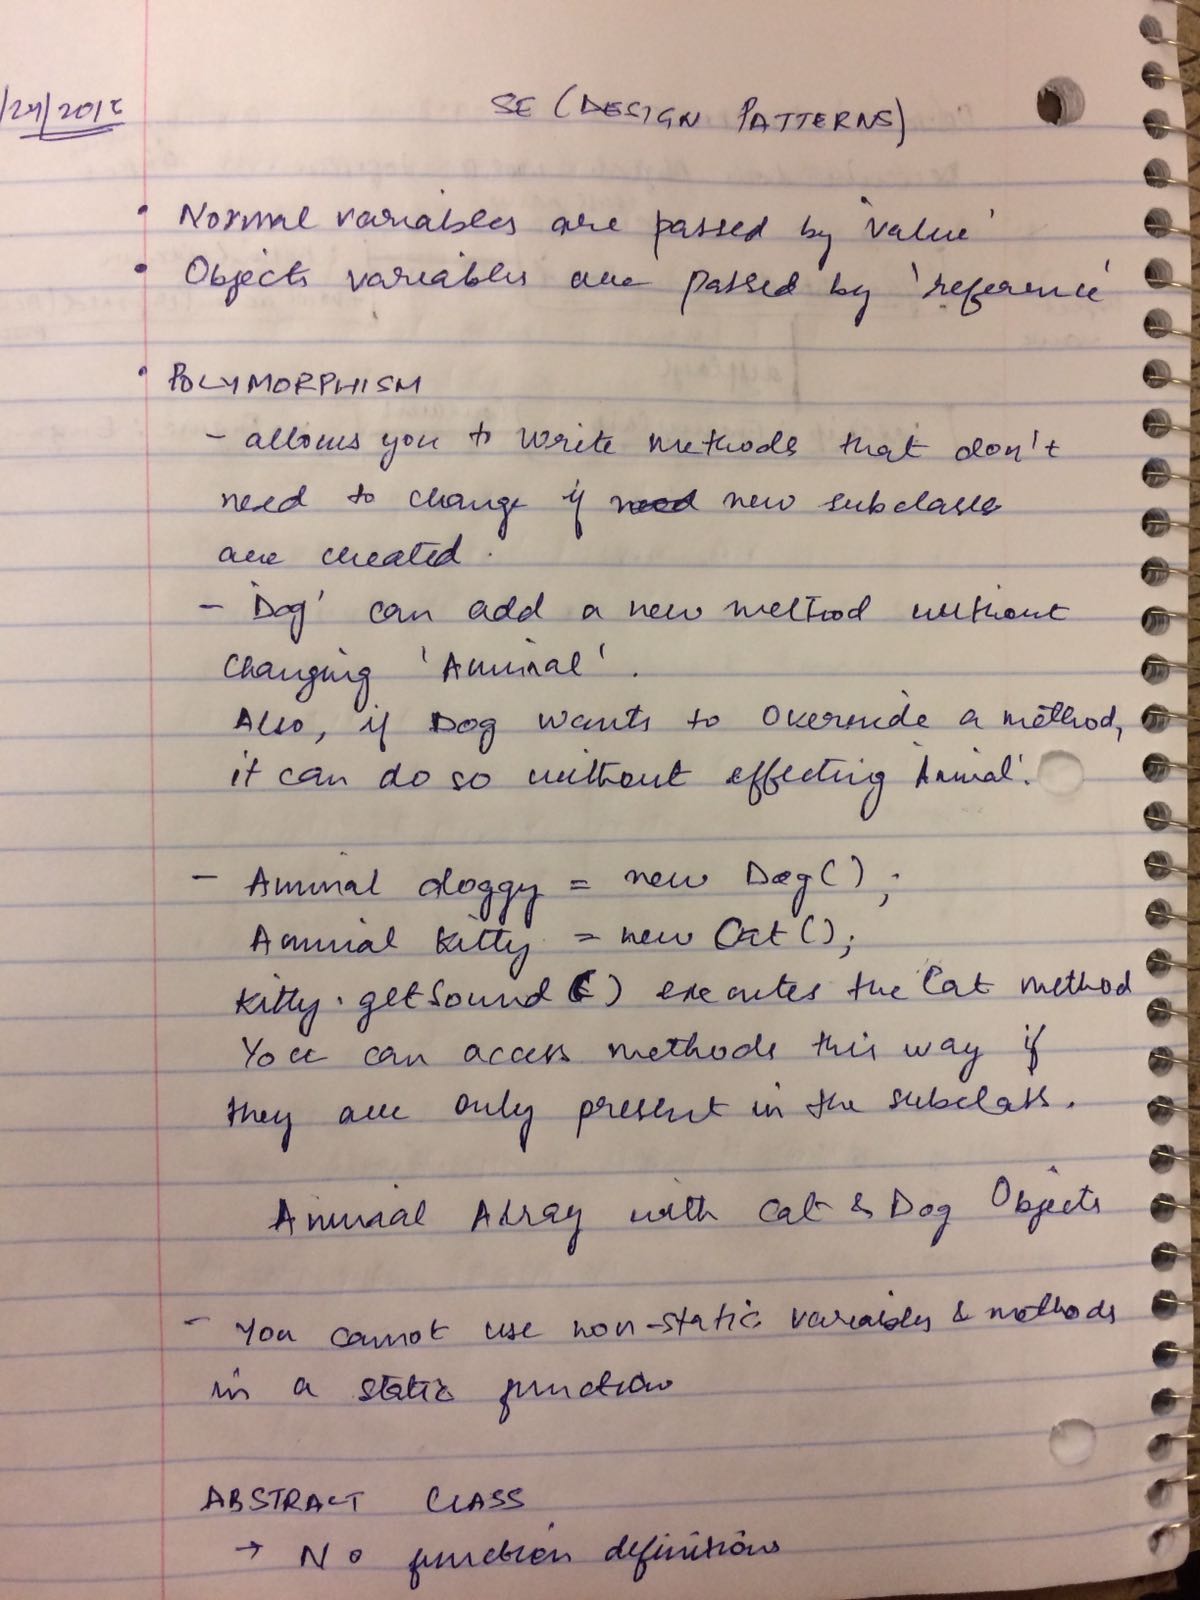 /24/2015
SE (DESIGN PATTERNS)
• Normal variables are passed by 'value'
• Objects variables are passed by 'reference'
• POLYMORPHISM
- allows you to write methods that don't
need to change if new subclasses
are created.
- 'Dog' can add a new method without
changing 'Animal'.
Also, if Dog wants to override a method,
it can do so without effecting 'Animal'.
- Animal doggy = new Dog();
Animal kitty = new Cat();
Kitty.getSound() executes the Cat method
You can access methods this way if
they are only present in the subclass.
Animal Array with Cat & Dog Objects
- You cannot use non-static variables & methods
in a static function
ABSTRACT CLASS
→ No function definitions